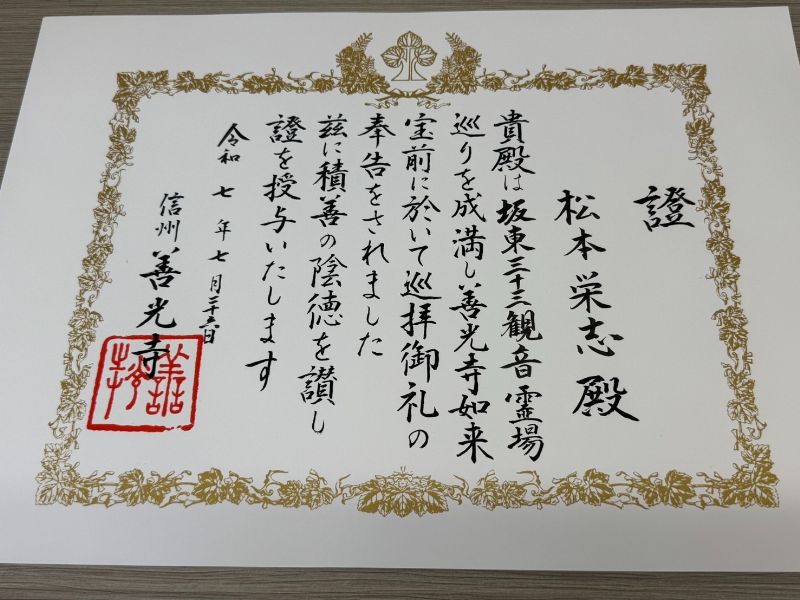 證
松本栄志殿
貴殿は坂東三十三観音霊場
巡りを成満し善光寺如来
宝前に於いて巡拝御礼の
奉告をされました
茲に積善の陰徳を讃し
證を授与いたします
令和七年七月二十六日
信州善光寺